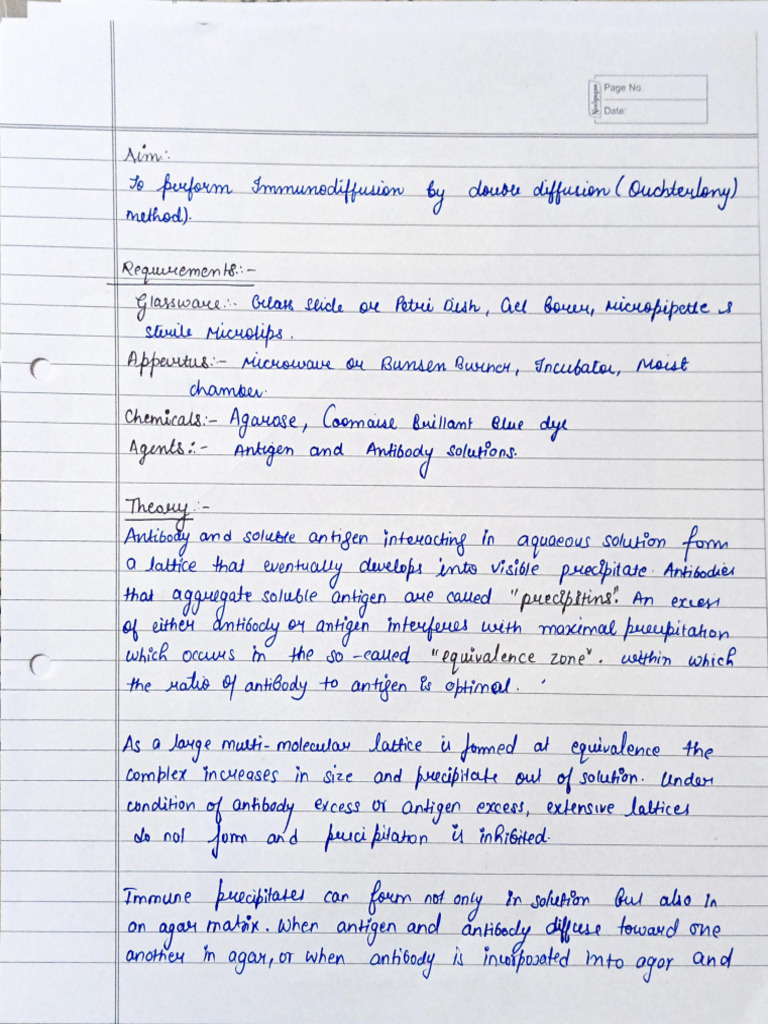 Page No.
Date:
Aim:
To perform Immunodiffusion by double diffusion (Ouchterlony)
method).
Requirements:-
Glassware:- Glass slide or Petri Dish, Gel Borer, Micropipette &
sterile Microtips.
Appartus:- Microwave or Bunsen Burner, Incubator, Moist
chamber.
Chemicals:- Agarose, Coomaise Brillant Blue dye
Agents:- Antigen and Antibody solutions.
Theory:-
Antibody and soluble antigen interacting in aquaeous solution form
a lattice that eventually develops into visible precipitate. Antibodies
that aggregate soluble antigen are called "precipitins". An excess
of either antibody or antigen interferes with maximal precipitation
which occurs in the so-called "equivalence zone". within which
the ratio of antibody to antigen is optimal.
As a large multi-molecular lattice is formed at equivalence the
complex increases in size and precipitate out of solution. Under
condition of antibody excess or antigen excess, extensive lattices
do not form and precipitation is inhibited.
Immune precipitates can form not only in solution but also in
an agar matrix. When antigen and antibody diffuse toward one
another in agar, or when antibody is incorporated into agar and